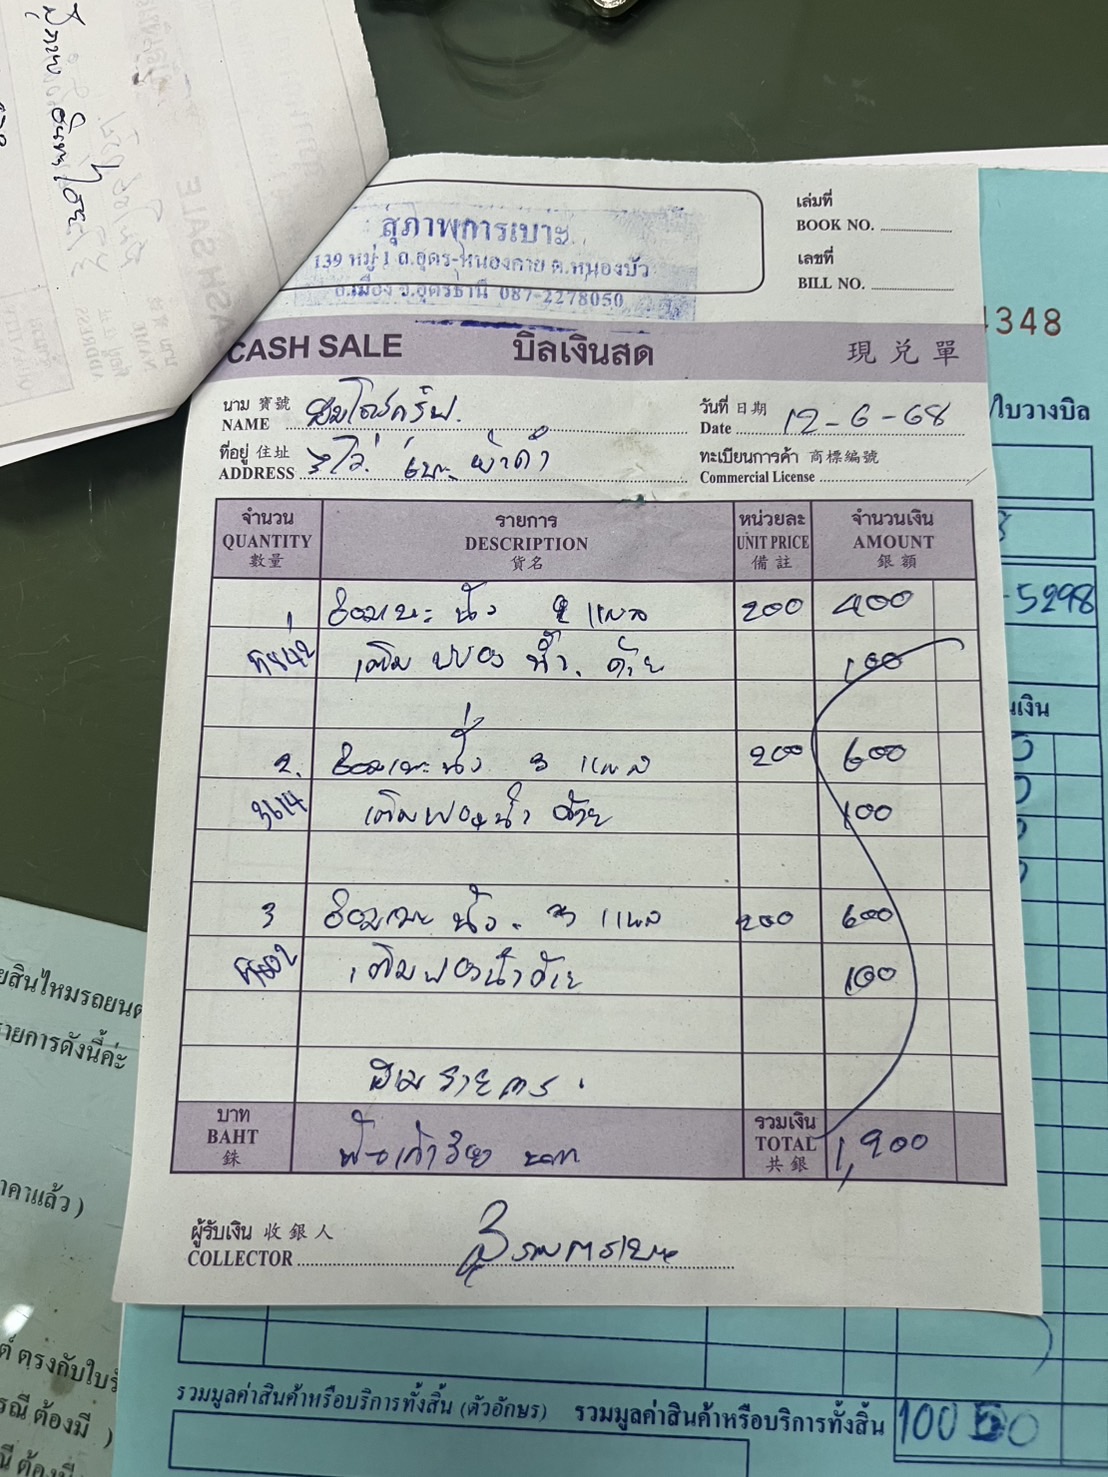 สุภาพการเบาะ
139 หมู่ 1 ถ.อุดร-หนองคาย ต.หนองบัว
อ.เมือง จ.อุดรธานี 087-2278050
เล่มที่
BOOK NO.
เลขที่
BILL NO.
348
CASH SALE บิลเงินสด 現兑單
นาม 寶號
NAME
วันที่ 日期
Date 12-6-68
ที่อยู่ 住址
ADDRESS
ทะเบียนการค้า 商標編號
Commercial License
/ใบวางบิล
จำนวน รายการ หน่วยละ จำนวนเงิน
QUANTITY DESCRIPTION UNIT PRICE AMOUNT
數量 貨名 備註 銀額
1 ซ่อมเบาะนั่ง 2 แผล 200 400
เติมฟองน้ำ ด้วย 100
2. ซ่อมเบาะนั่ง 3 แผล 200 600
3614 เติมฟองน้ำ ด้วย 100
3 ซ่อมเบาะนั่ง 3 แผล 200 600
เติมฟองน้ำด้วย 100
สามรายการ
บาท
BAHT
銖
พันเก้าร้อย บาท
รวมเงิน
TOTAL
共銀
1,900
ผู้รับเงิน 收銀人
COLLECTOR สุภาพการเบาะ
-5298
รวมมูลค่าสินค้าหรือบริการทั้งสิ้น (ตัวอักษร) รวมมูลค่าสินค้าหรือบริการทั้งสิ้น
รายการดังนี้ค่ะ
ต้องมี )